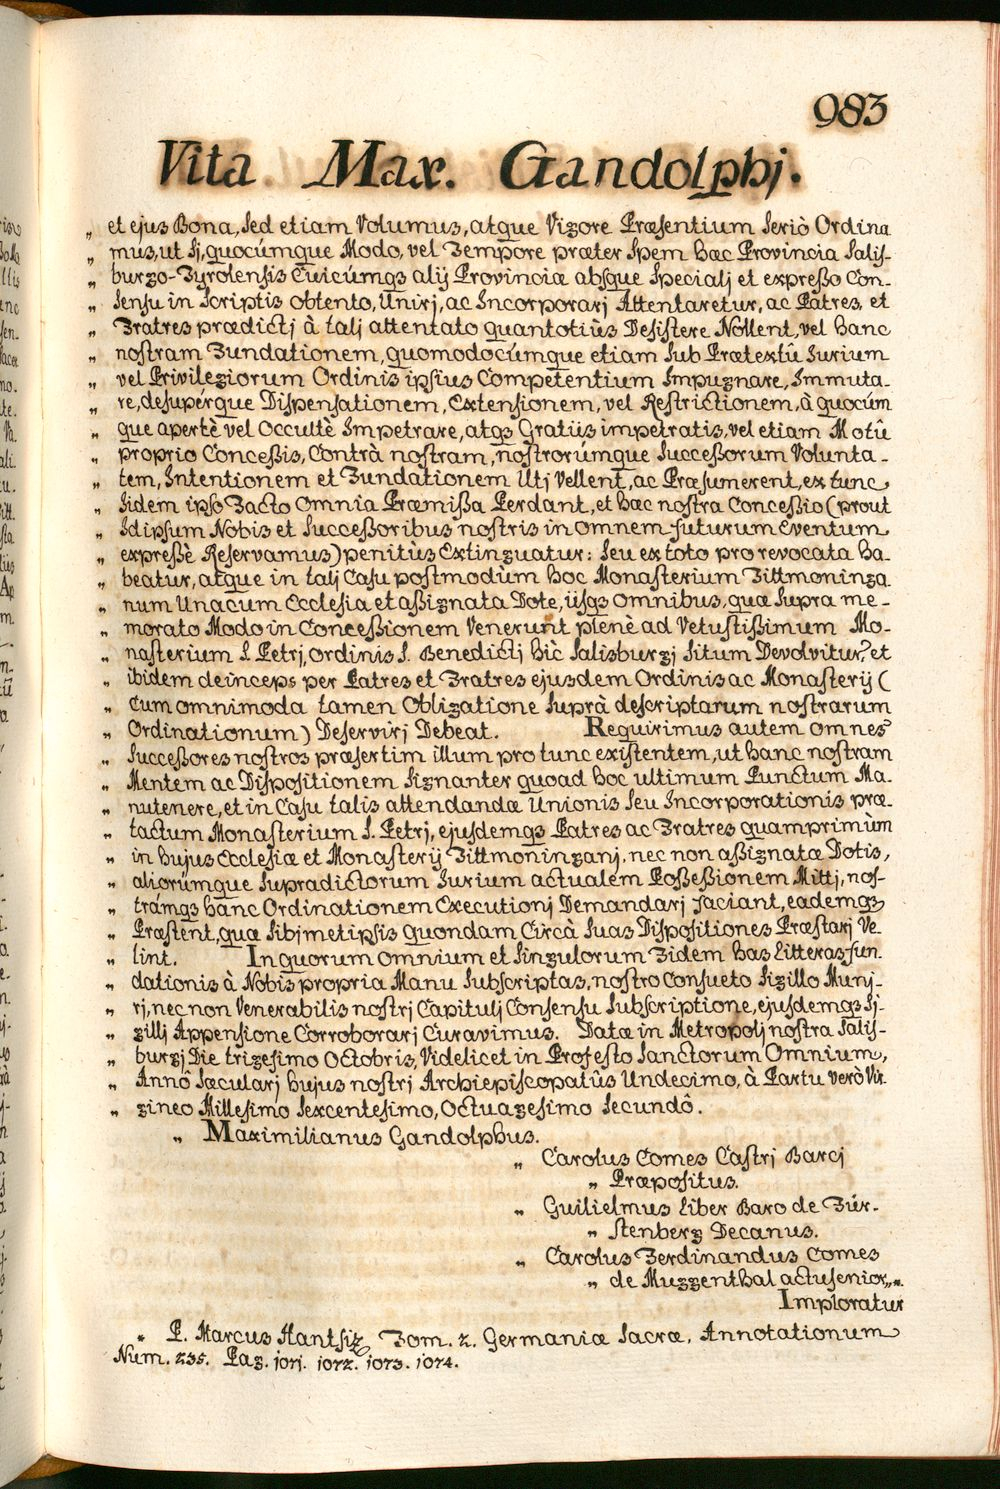 983
Vita Max. Gandolphj.
„ et ejus Bona, sed etiam Volumus, atque Vigore Præsentium seriò Ordina
„ mus, ut sj, quocúmque Modo, vel Tempore præter spem hæc Provincia Salis-
„ burgo-Tyrolensis Cuicúmqꝫ alij Provinciæ absque specialj et expresso Con-
„ sensu in scriptis obtento, Unirj, ac Incorporarj Attentaretur, ac Patres, et
„ Fratres prædictj à talj attentato quantotiùs Desistere Nollent, vel hanc
„ nostram Fundationem, quomodocúmque etiam sub Prætextû Jurium
„ vel Privilegiorum Ordinis ipsius Competentium Impugnare, Immuta-
„ re, desupérque Dispensationem, Extensionem, vel Restrictionem, à quocúm
„ que apertè vel Occultè Impetrare, atqꝫ Gratiis impetratis, vel etiam Motû
„ proprio Concessis, Contrà nostram, nostrorúmque Successorum Volunta-
„ tem, Intentionem et Fundationem Utj Vellent, ac Præsumerent, ex tunc
„ Iidem ipso Facto Omnia Præmissa Perdant, et hæc nostra Concessio (prout
„ Idipsum Nobis et Successoribus nostris in omnem futurum Eventum
„ expressè Reservamus) penitùs Extinguatur: seu ex toto pro revocata ha-
„ beatur, atque in talj Casu postmodùm hoc Monasterium Tittmoninga
„ num Unacum Ecclesia et assignata Dote, iisqꝫ omnibus, quæ supra me-
„ morato Modo in Concessionem Venerunt plenè ad Vetustissimum Mo-
„ nasterium S. Petrj, ordinis S. Benedictj hîc Salisburgj situm Devolvitur, et
„ ibidem deinceps per Patres et Fratres ejusdem Ordinis ac Monasterij (
„ Cum omnimoda tamen Obligatione suprà descriptarum nostrarum
„ Ordinationum) Deservirj Debeat. Requirimus autem omnes
„ Successores nostros præsertim illum pro tunc existentem, ut hanc nostram
„ Mentem ac Dispositionem signanter quoad hoc ultimum Punctum Ma-
„ nutenere, et in Casu talis attendandæ Unionis seu Incorporationis præ-
„ tactum Monasterium S. Petrj, ejusdemqꝫ Patres ac Fratres quamprimùm
„ in hujus Ecclesiæ et Monasterij Tittmoninganj, nec non assignatæ Dotis,
„ aliorúmque supradictorum Jurium actualem Possessionem Mittj, nos-
„ trámqꝫ hanc Ordinationem Executionj Demandarj faciant, eademqꝫ
„ Præstent, quæ sibjmetipsis quondam Circà suas Dispositiones Præstarj Ve-
„ lint. In quorum omnium et singulorum Fidem has Litteras fun-
„ dationis à Nobis propria Manu subscriptas, nostro Consueto sigillo Munj-
„ rj, nec non Venerabilis nostrj Capitulj Consensu subscriptione, ejusdemqꝫ Sj-
„ gillj Appensione Corroborarj Curavimus. Datæ in Metropolj nostra Salis-
„ burgj Die trigesimo Octobris, Videlicet in Profesto Sanctorum Omnium,
„ Annô sæcularj hujus nostrj Archiepiscopatûs Undecimo, à Partu verò Vir-
„ gineo Millesimo sexcentesimo, Octuagesimo secundô.
„ Maximilianus Gandolphus.
„ Carolus Comes Castrj Barcj
„ Præpositus.
„ Guilielmus Liber Baro de Für-
„ stenberg Decanus.
„ Carolus Ferdinandus Comes
„ de Muggenthal actu senior„.
Imploratur
„ P. Marcus Hantsiz Tom. 2. Germaniæ Sacræ, Annotationum
Num. 235. Pag. 1071. 1072. 1073. 1074.